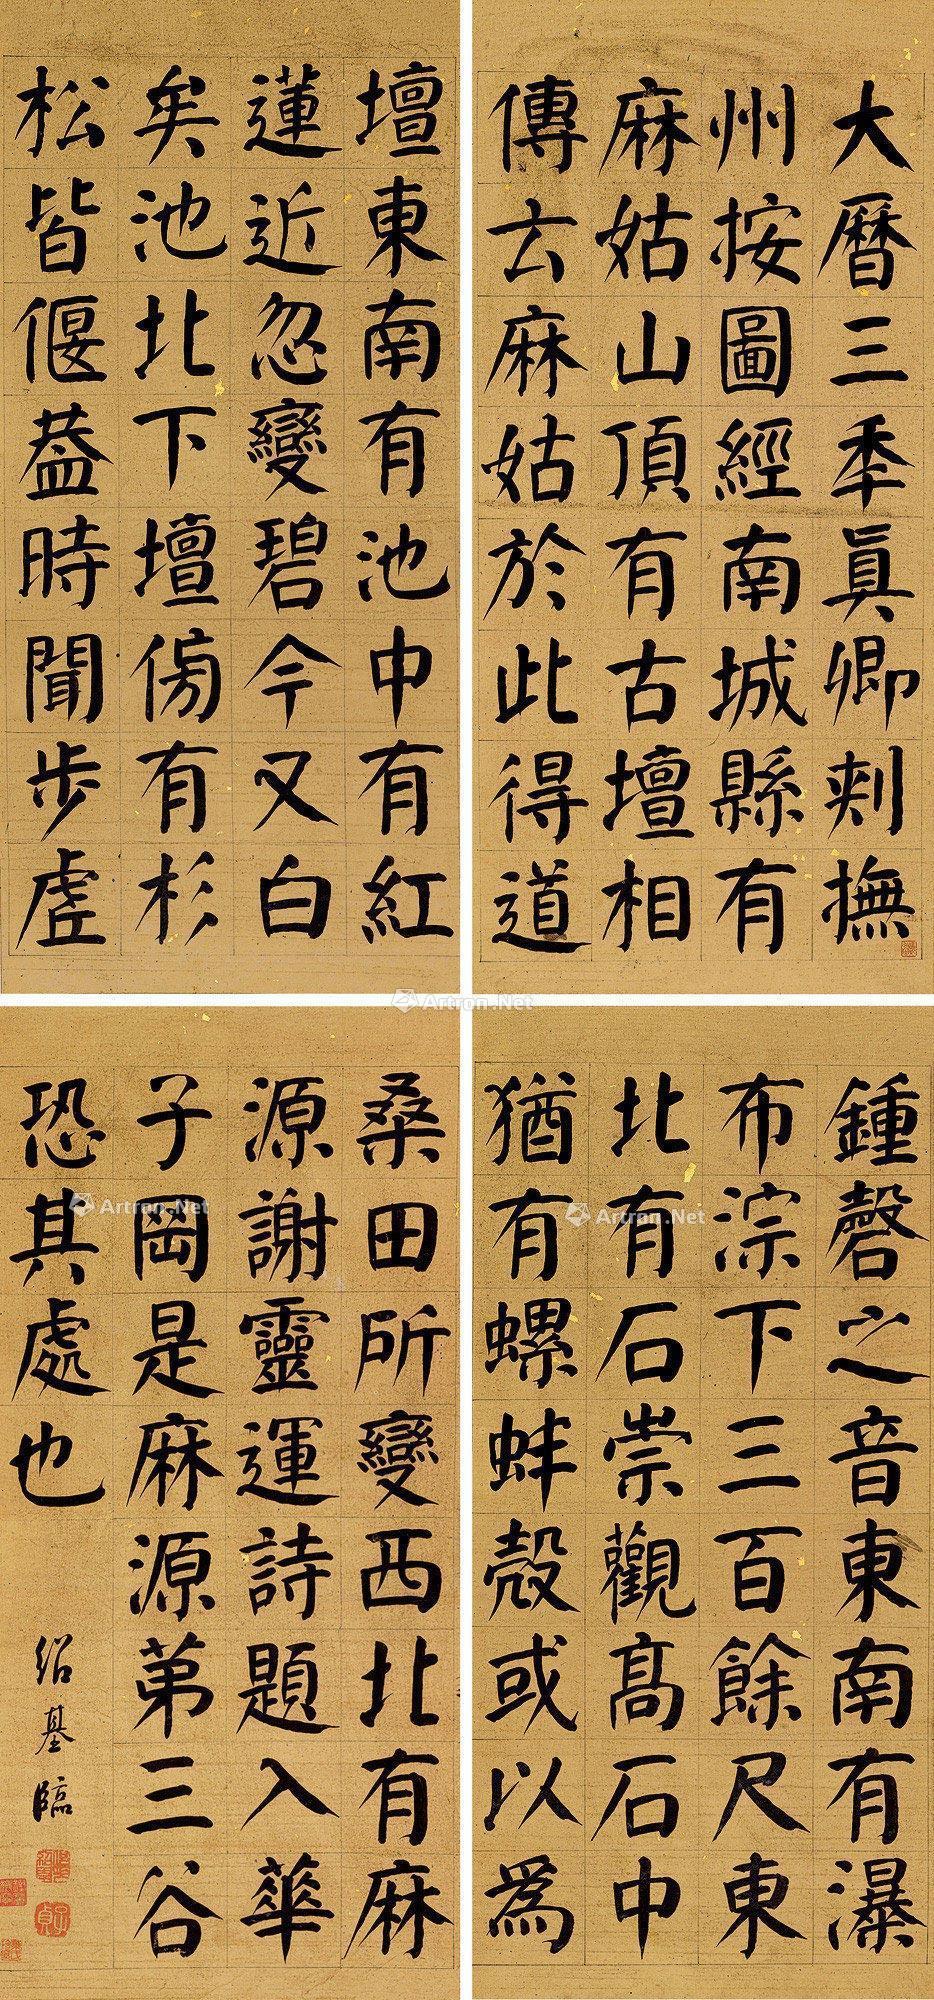 大曆三秊眞卿刾撫
州按圖經南城縣有
麻姑山頂有古壇相
傳云麻姑於此得道
壇東南有池中有紅
蓮近忽變碧今又白
矣池北下壇傍有杉
松皆偃葢時聞步虛
鍾磬之音東南有瀑
布淙下三百餘尺東
北有石崇觀高石中
猶有螺蚌殼或以為
桑田所變西北有麻
源謝靈運詩題入華
子岡是麻源第三谷
恐其處也
紹基臨
Artron.Net
Artron.Net
Artron.Net